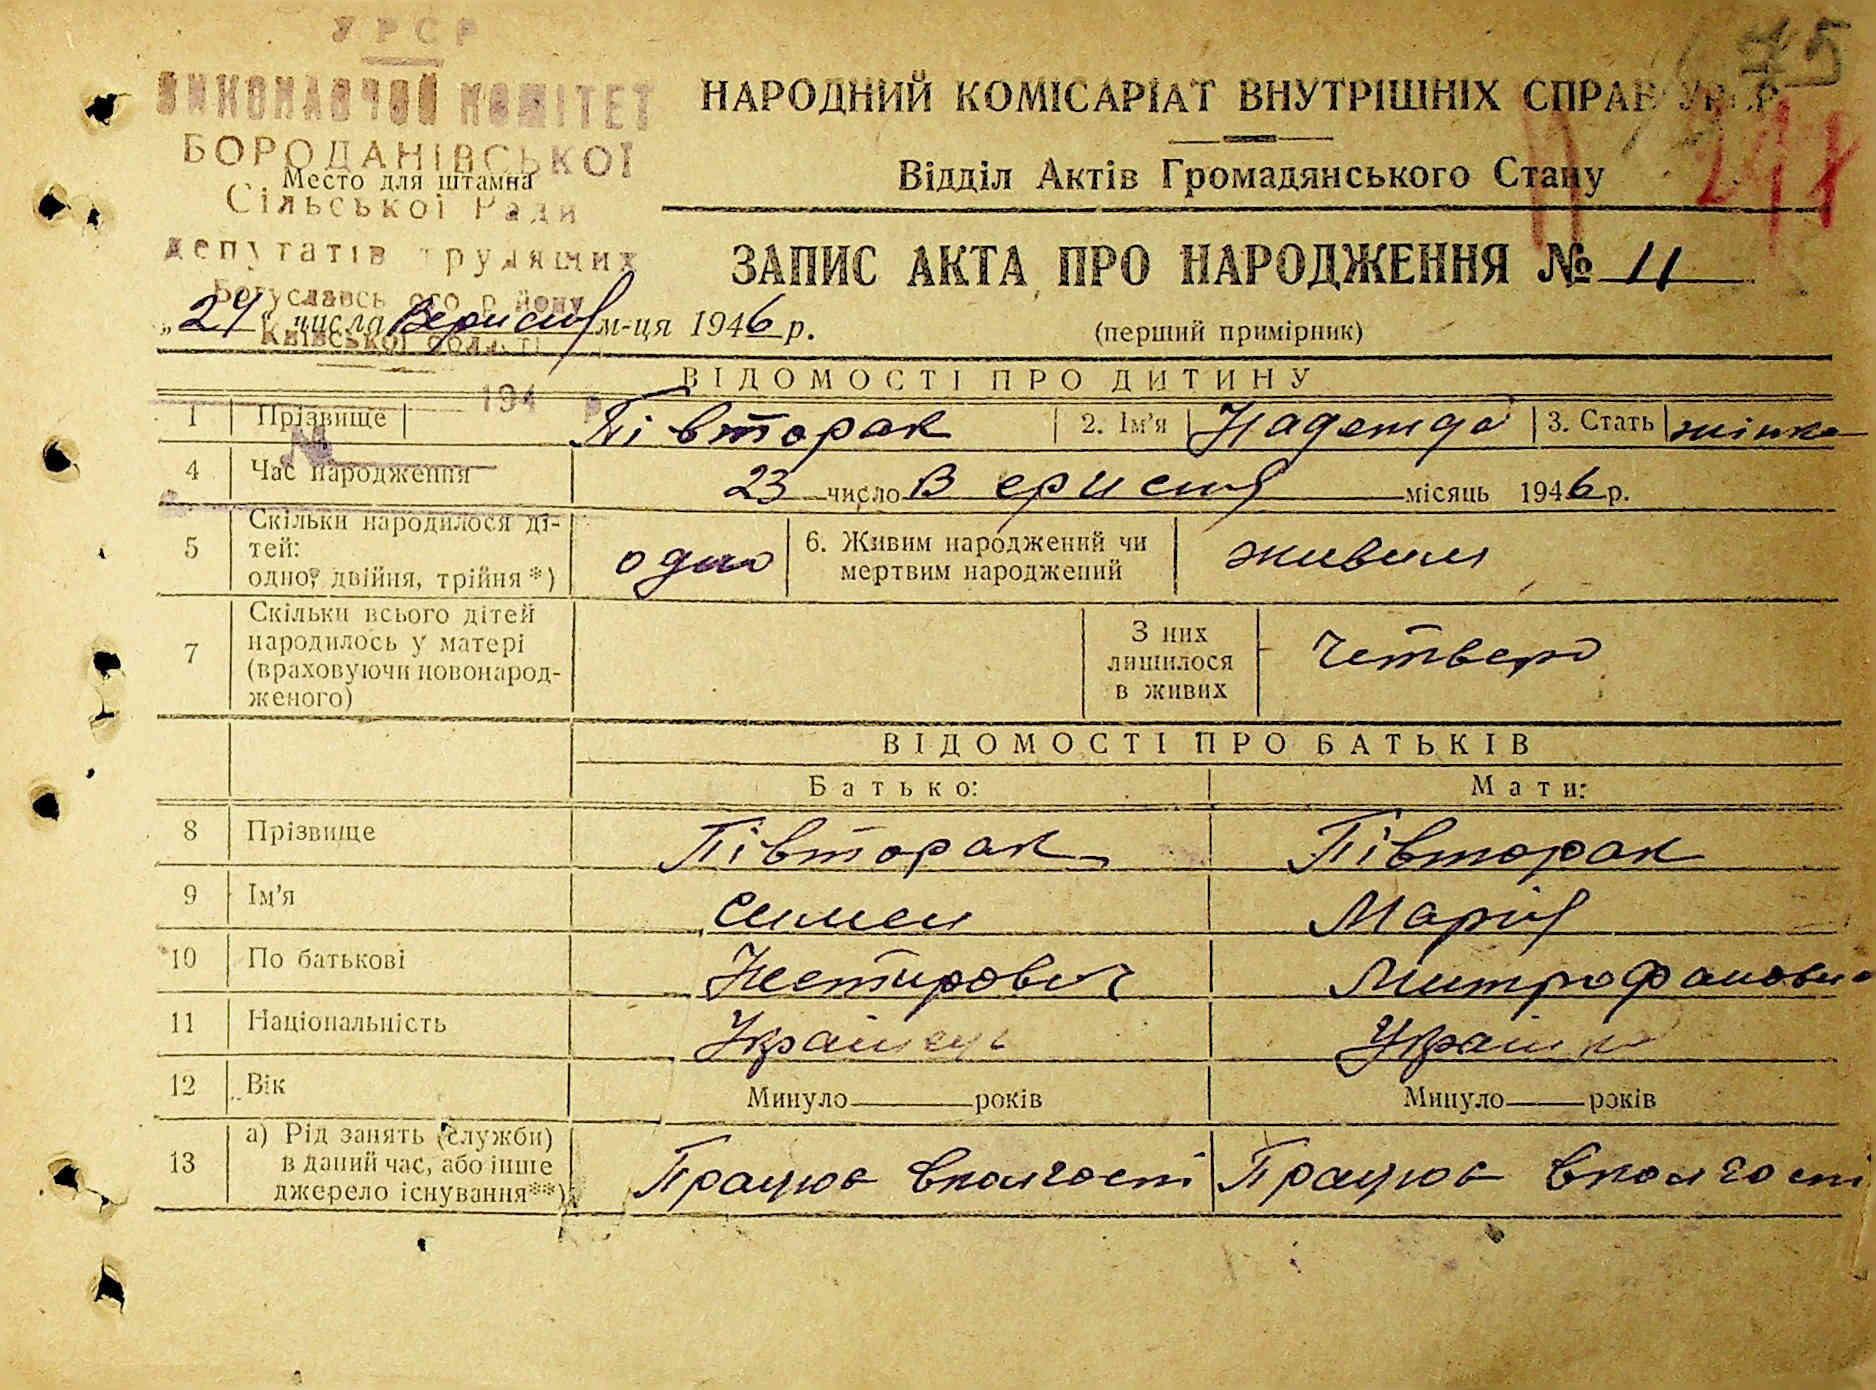 УРСР
ВИКОНАВЧИЙ КОМІТЕТ
БОРОДАНІВСЬКОЇ
Место для штампа
Сільської Ради
депутатів трудящих
Богуславського району
Київської області
194 р
№
75
241
НАРОДНИЙ КОМІСАРІАТ ВНУТРІШНІХ СПРАВ УРСР
Відділ Актів Громадянського Стану
ЗАПИС АКТА ПРО НАРОДЖЕННЯ № 11
„24“ числа Вересня м-ця 1946 р.
(перший примірник)
ВІДОМОСТІ ПРО ДИТИНУ
1 Прізвище Півторак 2. Ім'я Надежда 3. Стать жінка
4 Час народження 23 число Вересня місяць 1946 р.
5 Скільки народилося ді-
тей:
одно, двійня, трійня *) одно 6. Живим народжений чи
мертвим народжений живим
7 Скільки всього дітей
народилось у матері
(враховуючи новонарод-
женого)
З них
лишилося
в живих Четверо
ВІДОМОСТІ ПРО БАТЬКІВ
Батько: Мати:
8 Прізвище Півторак Півторак
9 Ім'я Симен Марія
10 По батькові Нестирович Митрофановна
11 Національність Українець Українка
12 Вік Минуло років Минуло років
13 а) Рід занять (служби)
в даний час, або інше
джерело існування **) Працює вколгоспі Працює вколгоспі